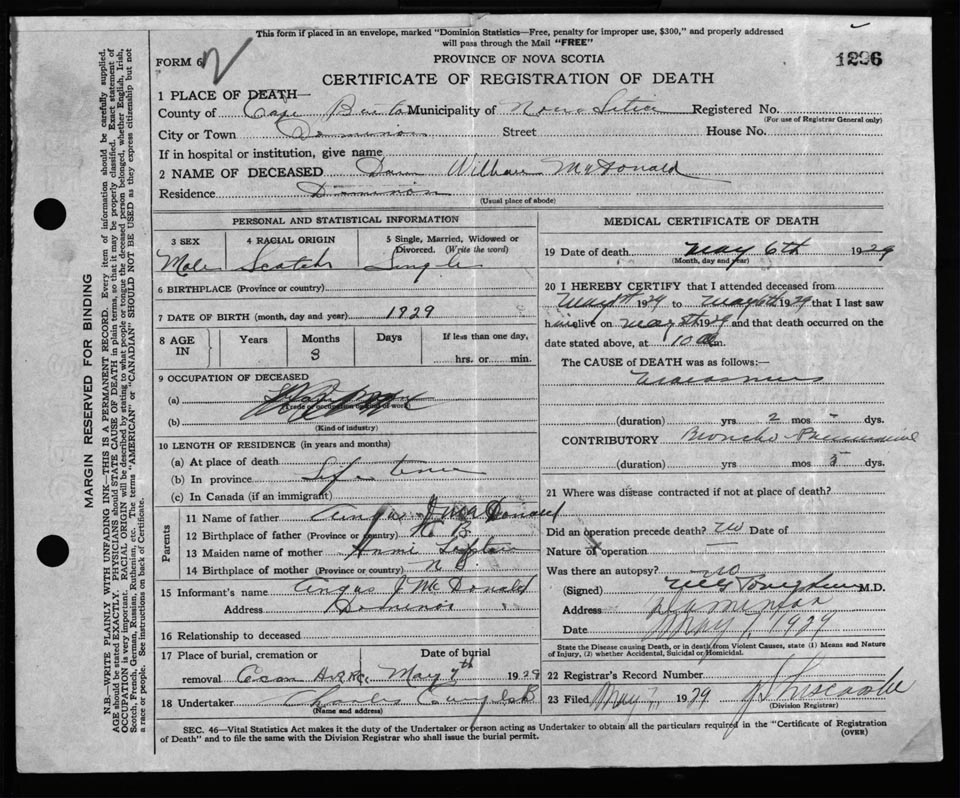 This form if placed in an envelope, marked "Dominion Statistics—Free, penalty for improper use, $300," and properly addressed
will pass through the Mail "FREE"
FORM 6
PROVINCE OF NOVA SCOTIA
1296
CERTIFICATE OF REGISTRATION OF DEATH
1 PLACE OF DEATH—
County of Cape Municipality of Nova Registered No.
(For use of Registrar General only)
City or Town Dominion Street House No.
If in hospital or institution, give name
2 NAME OF DECEASED William McDonald
Residence Dominion
(Usual place of abode)
PERSONAL AND STATISTICAL INFORMATION
3 SEX 4 RACIAL ORIGIN 5 Single, Married, Widowed or Divorced. (Write the word)
Male Scotch Single
6 BIRTHPLACE (Province or country)
7 DATE OF BIRTH (month, day and year) 1929
8 AGE IN Years Months Days If less than one day,
3 hrs. or min.
9 OCCUPATION OF DECEASED
(a)
(Trade or occupation or kind of work)
(b)
(Kind of industry)
10 LENGTH OF RESIDENCE (in years and months)
(a) At place of death
(b) In province Life time
(c) In Canada (if an immigrant)
Parents
11 Name of father Angus J McDonald
12 Birthplace of father (Province or country)
13 Maiden name of mother Annie
14 Birthplace of mother (Province or country) N S.
15 Informant's name Angus J McDonald
Address Dominion
16 Relationship to deceased
17 Place of burial, cremation or Date of burial
removal May 7th 1929
18 Undertaker Charles
(Name and address)
MEDICAL CERTIFICATE OF DEATH
19 Date of death May 6th 1929
(Month, day and year)
20 I HEREBY CERTIFY that I attended deceased from
May 1929 to May 6th 1929 that I last saw
him alive on May 5th 1929 and that death occurred on the
date stated above, at 10 a m.
The CAUSE of DEATH was as follows:—
Marasmus
(duration) yrs 2 mos - dys.
CONTRIBUTORY Broncho-Pneumonia
(duration) yrs mos 5 dys.
21 Where was disease contracted if not at place of death?
Did an operation precede death? No Date of
Nature of operation
Was there an autopsy? No
(Signed) M.D.
Address
Date May 7, 1929
State the Disease causing Death, or in death from Violent Causes, state (1) Means and Nature
of Injury, (2) whether Accidental, Suicidal or Homicidal.
22 Registrar's Record Number
23 Filed May 7, 1929
(Division Registrar)
SEC. 46—Vital Statistics Act makes it the duty of the Undertaker or person acting as Undertaker to obtain all the particulars required in the "Certificate of Registration
of Death" and to file the same with the Division Registrar who shall issue the burial permit.
(OVER)
MARGIN RESERVED FOR BINDING
N.B.—WRITE PLAINLY WITH UNFADING INK—THIS IS A PERMANENT RECORD. Every item of information should be carefully supplied.
AGE should be stated EXACTLY. PHYSICIANS should STATE CAUSE OF DEATH in plain terms, so that it may be properly classified. Exact statement of
OCCUPATION is very important. RACIAL ORIGIN will be described by stating to what people or tongue the deceased person belonged, whether English, Irish,
Scotch, French, German, Russian, Ruthenian, etc. The terms "AMERICAN" or "CANADIAN" SHOULD NOT BE USED as they express citizenship but not
a race or people. See instructions on back of Certificate.